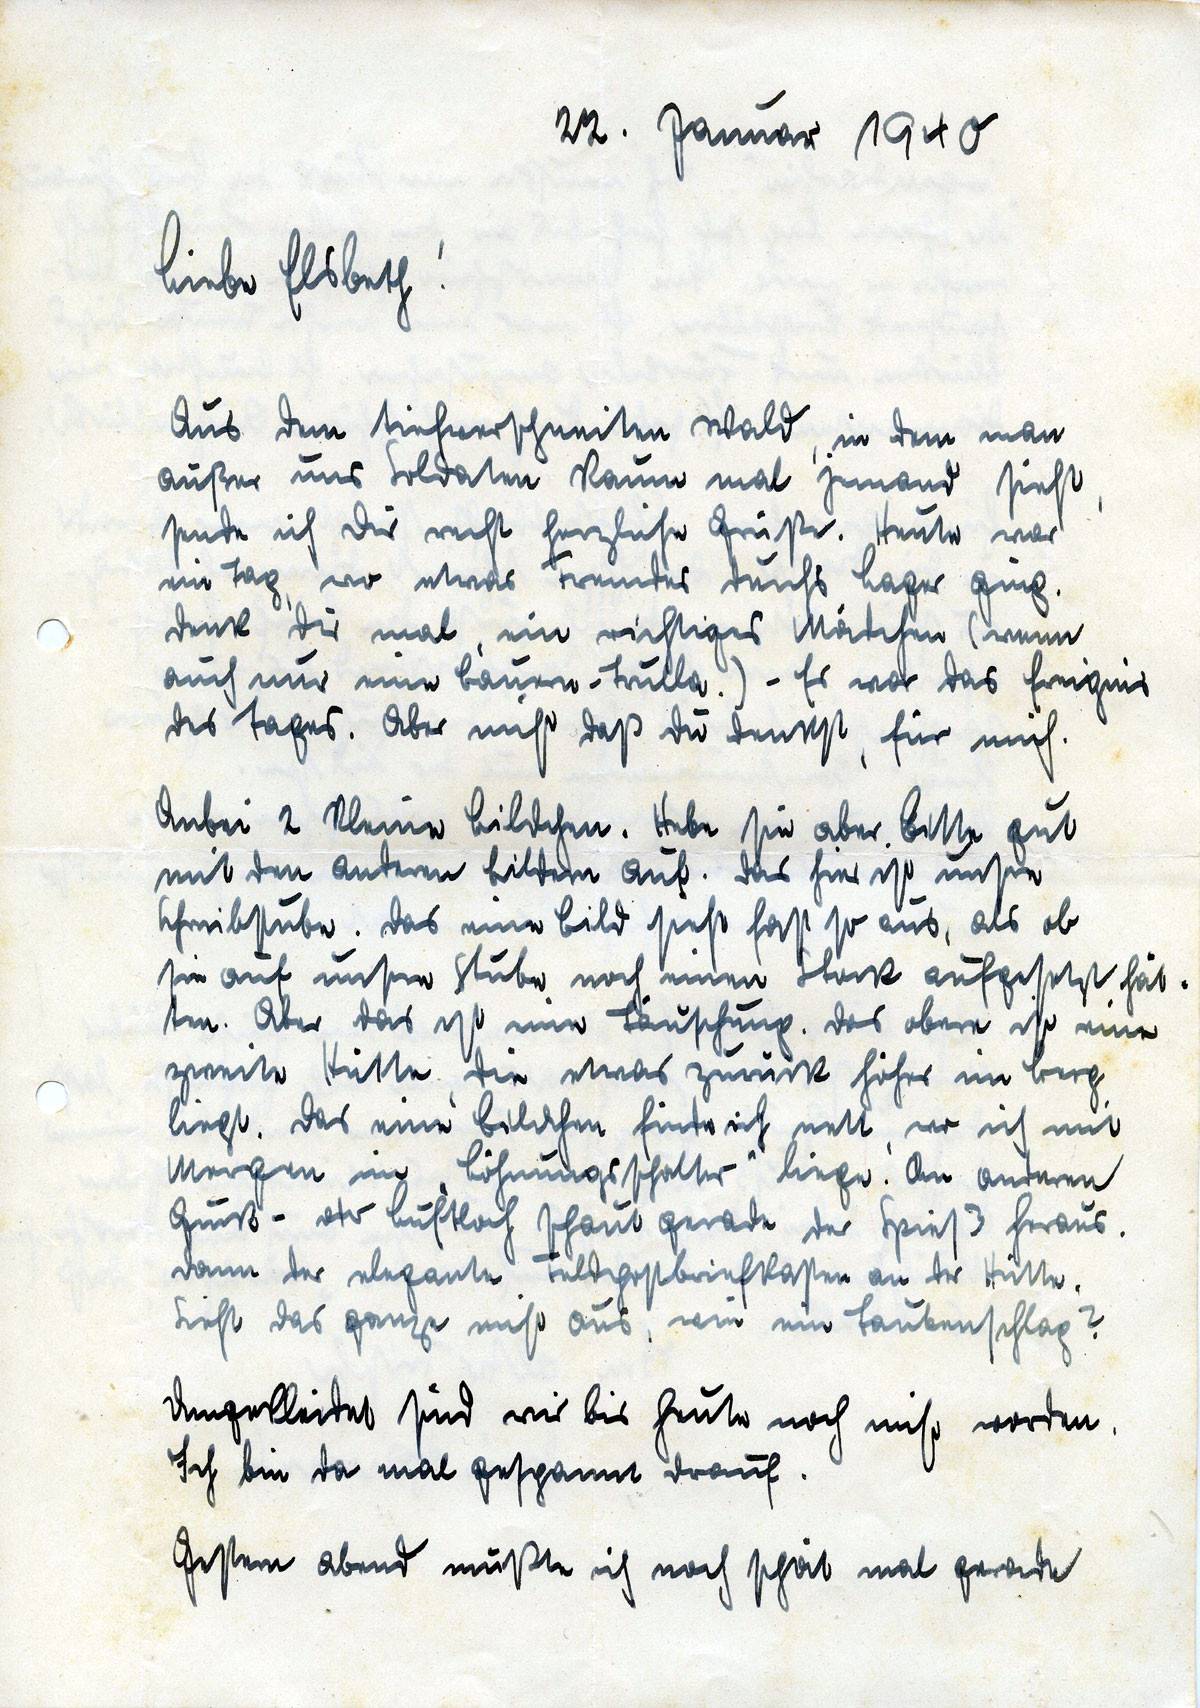 22. Januar 1940
Liebe Elsbeth!
Aus dem tiefverschneiten Wald, in dem man
außer uns Soldaten kaum mal jemand sieht,
sende ich Dir recht herzliche Grüße. Heute war
ein Tag, wo etwas Fremdes durchs Lager ging.
Denk Dir mal, ein richtiges Mädchen (wenn
auch nur eine Bauern-Trulla.) - Es war das Ereignis
des Tages. Aber nicht daß Du denkst, für mich.
Anbei 2 kleine Bildchen. Hebe sie aber bitte gut
mit den anderen Bildern auf. Das hier ist unsere
Schreibstube. Das eine Bild sieht fast so aus, als ob
sie auf unsere Stube noch einen Stock aufgesetzt hät-
ten. Aber das ist eine Täuschung. Das obere ist eine
zweite Hütte, die etwas zurück höher im Berg
liegt. Das eine Bildchen finde ich nett, wo ich mit
im "Löhnungsschalter" liege! Am anderen
Guck- oder Luftloch schaut gerade der Spieß heraus.
Dann der elegante Feldpostbriefkasten an der Hütte.
Sieht das ganze nicht aus, wie ein Taubenschlag?
Umgekleidet sind wir bis heute noch nicht worden.
Ich bin da mal gespannt drauf.
Gestern abend mußte ich noch spät mal gerade